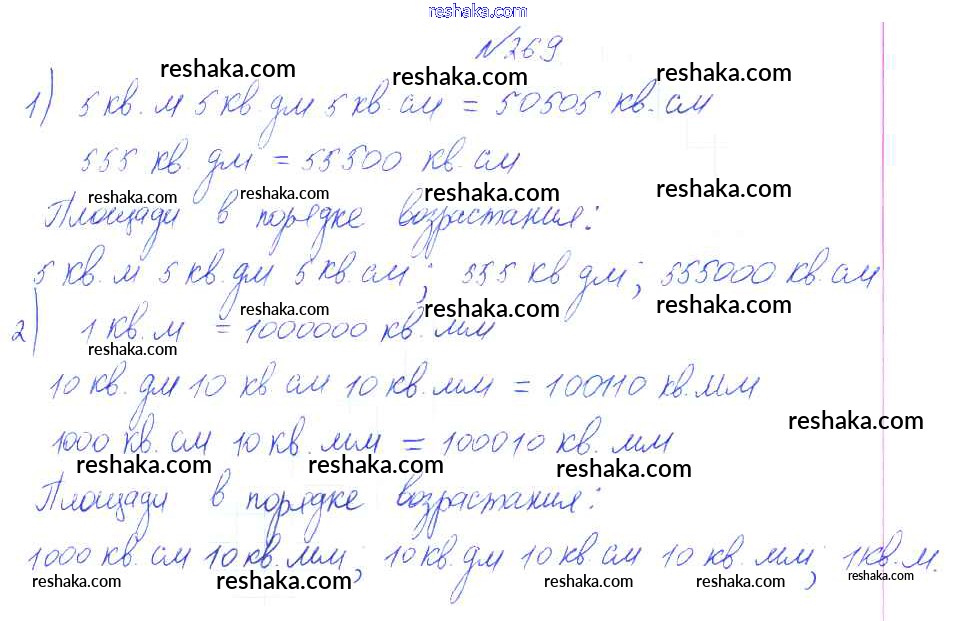 reshaka.com
№269
reshaka.com reshaka.com reshaka.com
1) 5 кв. м 5 кв. дм 5 кв. см = 50505 кв. см
555 кв. дм = 55500 кв. см
reshaka.com reshaka.com reshaka.com reshaka.com
Площади в порядке возрастания:
5 кв. м 5 кв. дм 5 кв см; 555 кв дм; 555000 кв. см
reshaka.com reshaka.com reshaka.com reshaka.com
2) 1 кв. м = 1000000 кв. мм
reshaka.com
10 кв. дм 10 кв см 10 кв. мм = 100110 кв. мм
reshaka.com
1000 кв. см 10 кв. мм = 100010 кв. мм
reshaka.com reshaka.com reshaka.com
Площади в порядке возрастания:
1000 кв. см 10 кв. мм; 10 кв. дм 10 кв. см 10 кв. мм; 1 кв. м.
reshaka.com reshaka.com reshaka.com reshaka.com reshaka.com